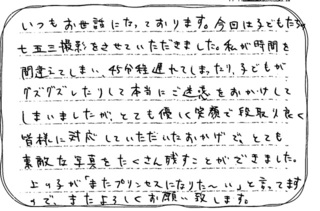 いつもお世話になっております。今回は子どもたちの
七五三撮影をさせていただきました。私が時間を
間違えてしまい、45分程遅れてしまったり、子どもが
グズグズしたりして本当にご迷惑をおかけして
しまいましたが、とても優しく笑顔で段取り良く
皆様に対応していただいたおかげで、とても
素敵な写真をたくさん残すことができました。
上の子が「またプリンセスになりた〜い」と言ってます
ので、またよろしくお願い致します。